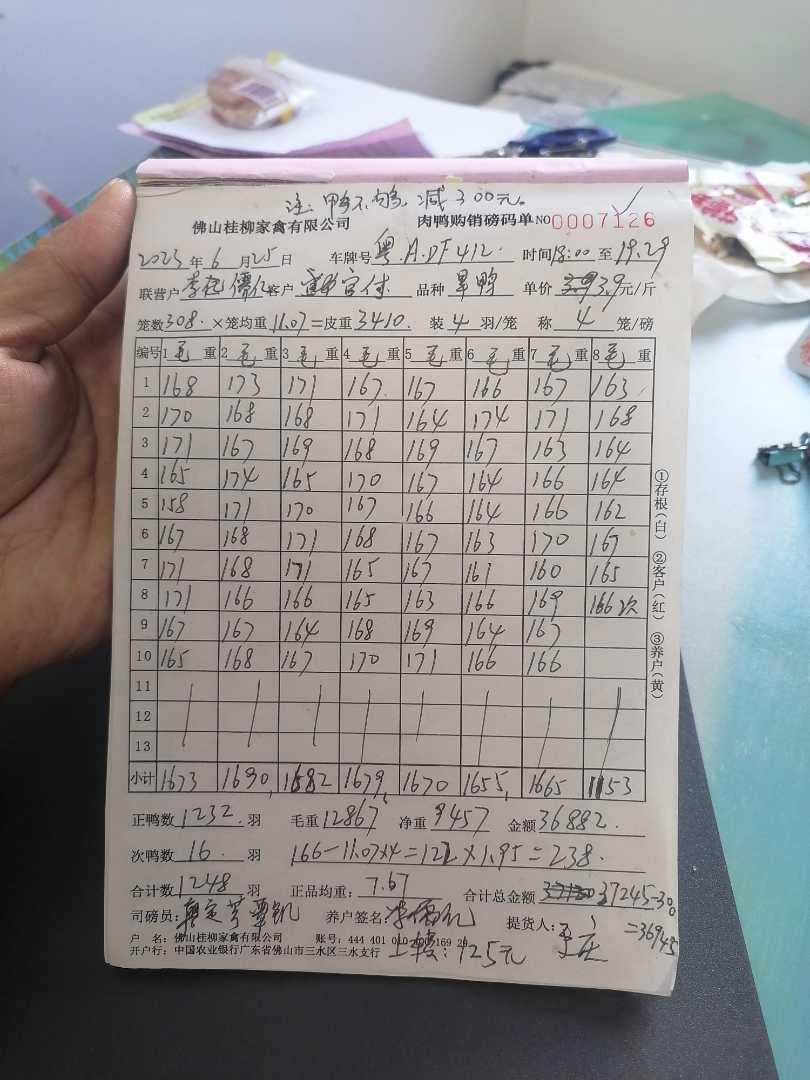 注：鸭不够，减300元。
佛山桂柳家禽有限公司 肉鸭购销磅码单 NO 0007126
2023年6月25日 车牌号 粤.A.DF412. 时间18:00至19.29
联营户 客户 品种 旱鸭 单价 3.9元/斤
笼数308.×笼均重11.07=皮重3410. 装4羽/笼 称4笼/磅
编号 1毛重 2毛重 3毛重 4毛重 5毛重 6毛重 7毛重 8毛重
1 168 173 171 167 167 166 167 163
2 170 168 168 171 164 174 171 168
3 171 167 169 168 169 167 163 164
4 165 174 165 170 167 164 166 164
5 158 171 170 167 166 164 166 162
6 167 168 171 168 167 163 170 167
7 171 168 171 165 167 161 160 165
8 171 166 166 165 163 166 169 166次
9 167 167 164 168 169 164 167
10 165 168 167 170 171 166 166
11
12
13
小计 1673 1690 1682 1679 1670 1655 1665 1153
正鸭数1232.羽 毛重12867 净重9457 金额36882.
次鸭数16.羽 166-11.07×4=122×1.95=238.
合计数1248羽 正品均重：7.67 合计总金额 37245-300
=36945
司磅员： 养户签名： 提货人：
户 名：佛山桂柳家禽有限公司 账号：444 401 010 169
开户行：中国农业银行广东省佛山市三水区三水支行 上楼：125元
①存根(白) ②客户(红) ③养户(黄)